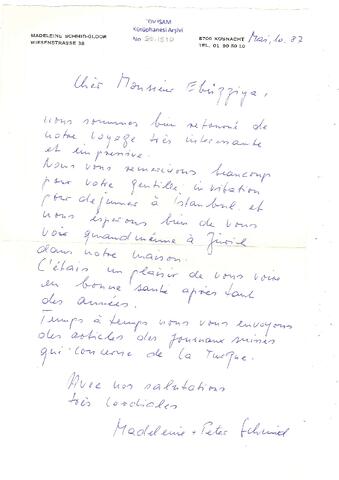 MADELEINE SCHMID-GLOOR
WIESENSTRASSE 38
TÖV İSAM
Kütüphanesi Arşivi
No
8700 KÜSNACHT
TEL. 01 90 50 10
Mai, 10. 87
Cher Monsieur Ebüzziya,
nous sommes bien retourné de
notre voyage très interessante
et impressive.
Nous vous remercions beaucoup
pour votre gentille invitation
pour dejeuner à Istanbul et
nous espérons bien de vous
voir quand même à Zürich
dans notre maison.
C'étais un plaisir de vous voire
en bonne santé après tant
des années.
Temps à temps nous vous envoyons
des articles des journaux suisses
qui concerne de la Turquie.
Avec nos salutations
très cordiales
Madeleine + Peter Schmid